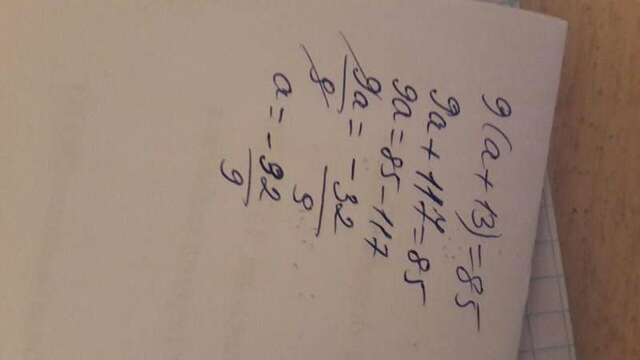 9(a+13)=85
9a+117=85
9a=85-117
9a/9 = -32/9
a=-92/9